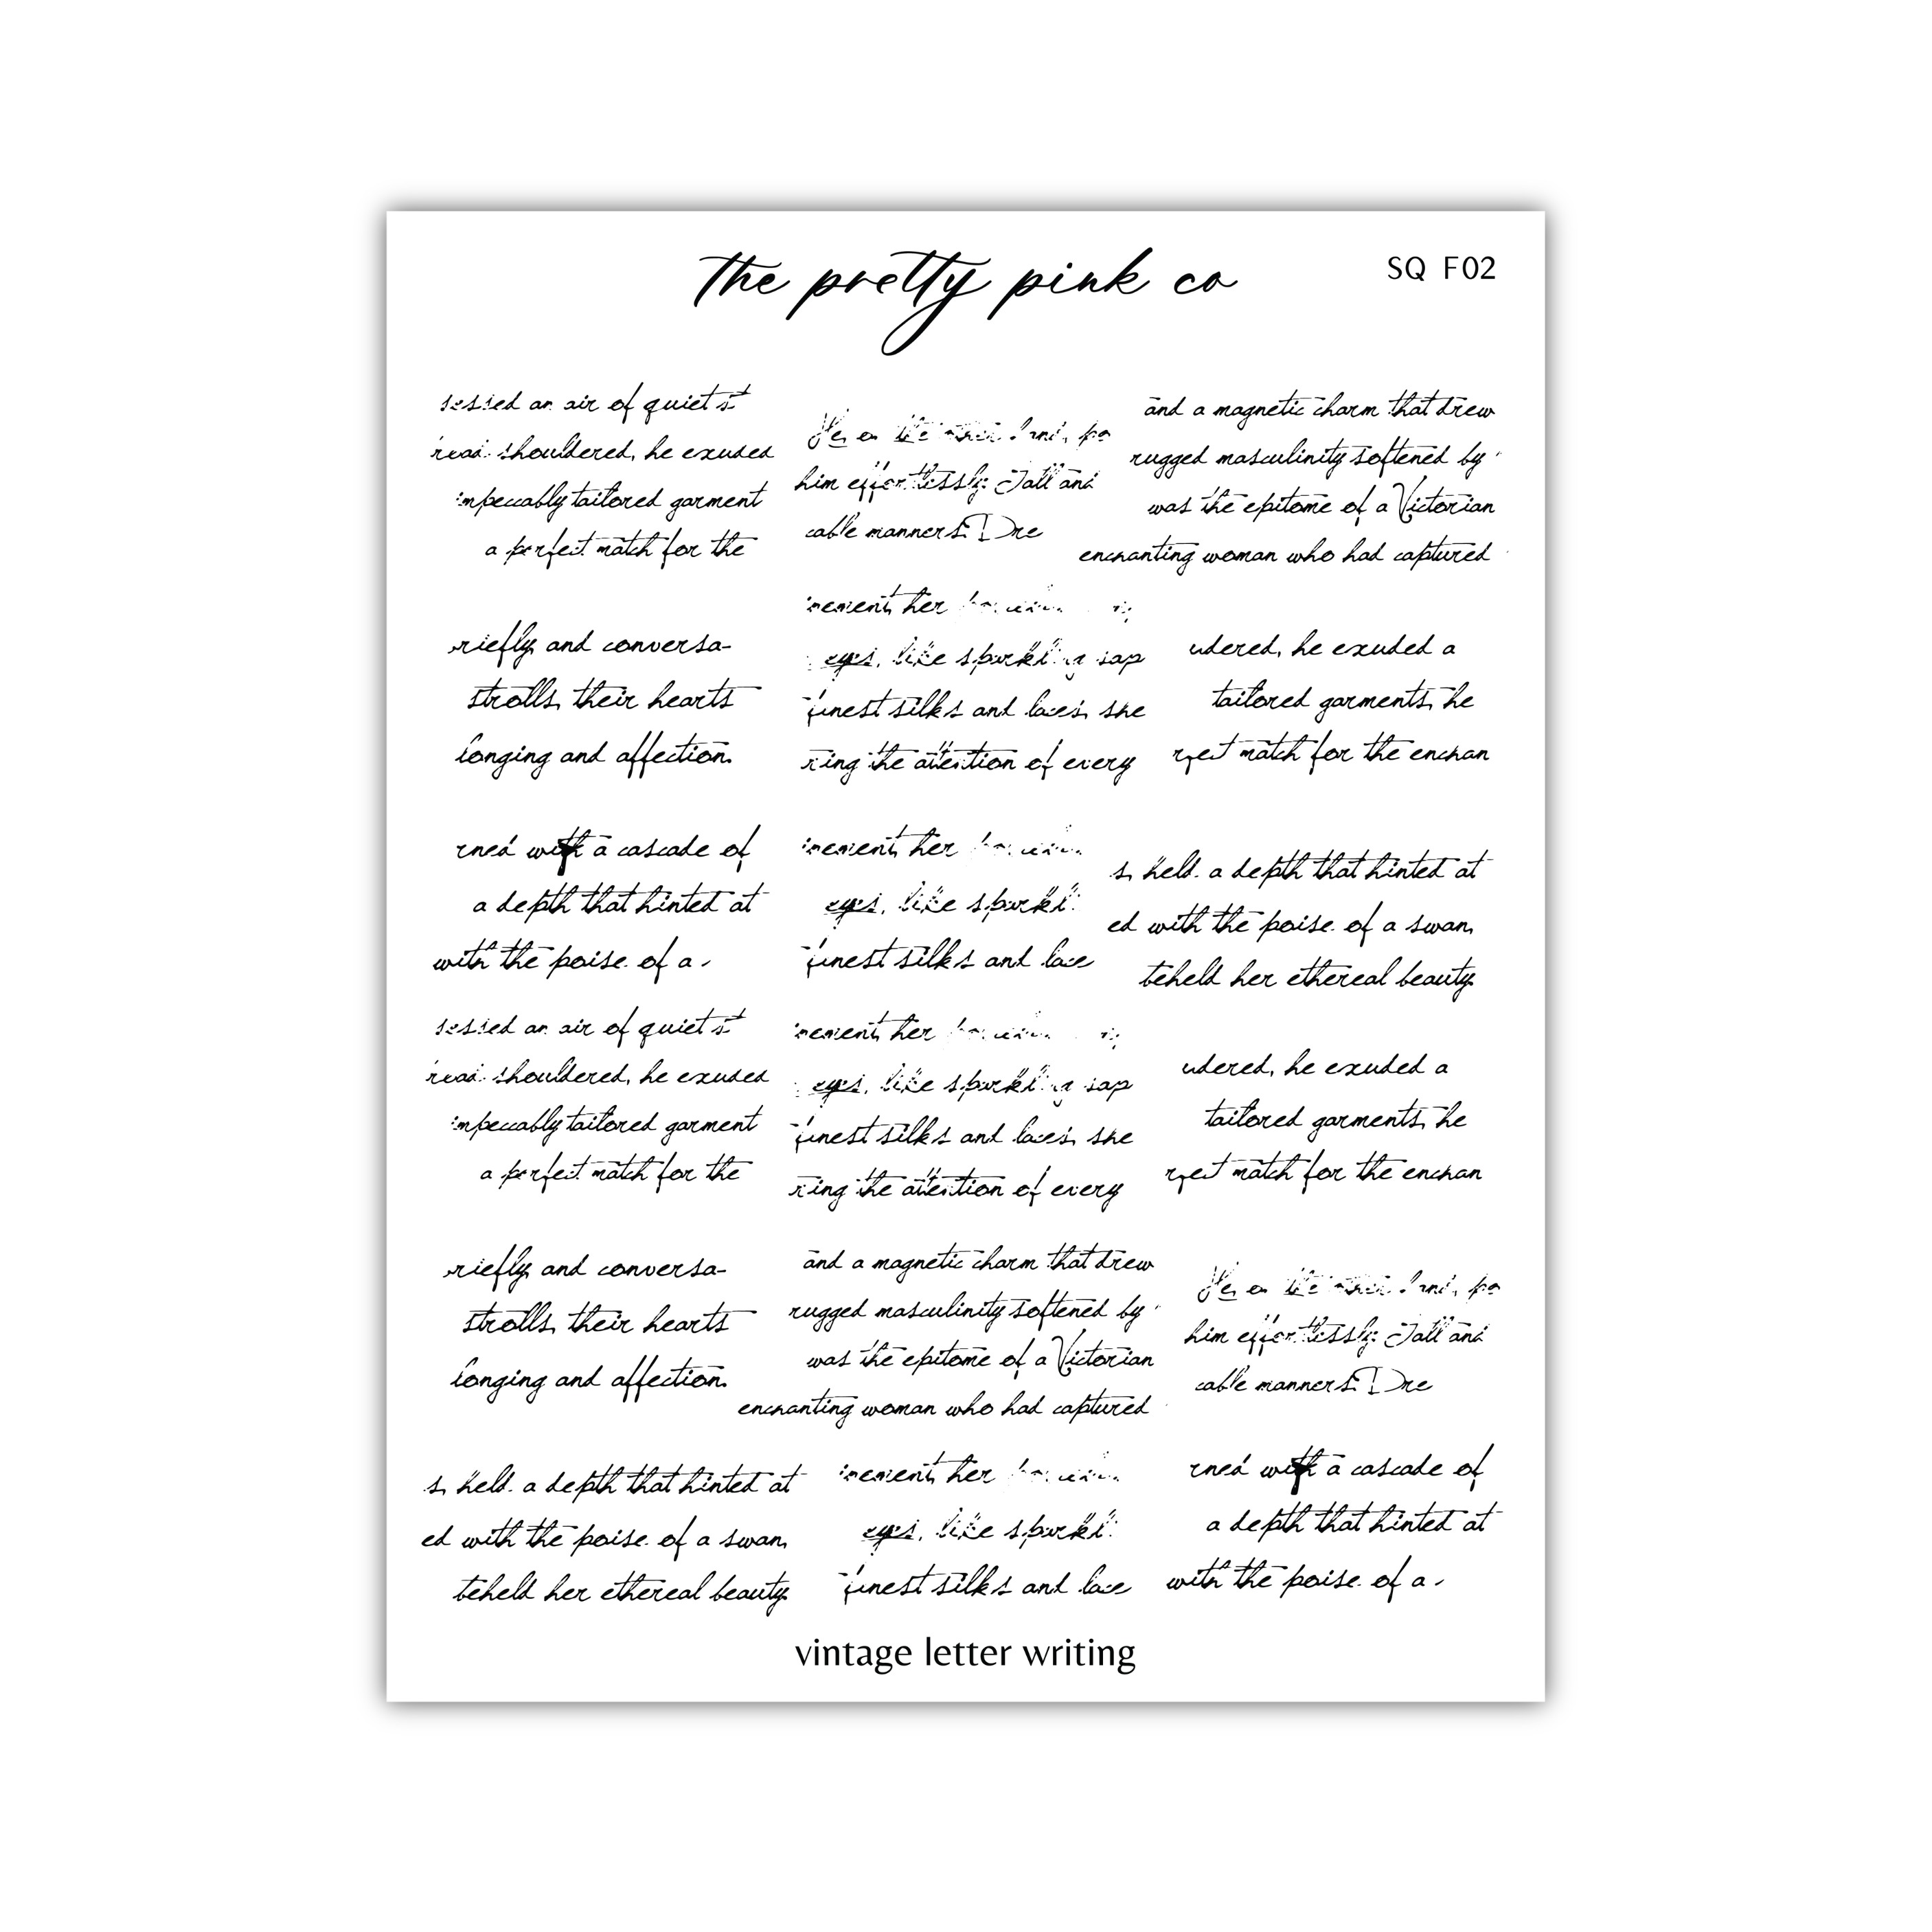 the pretty pink co
SQ F02
an air of quiet
shouldered, he exuded
impeccably tailored garment
a perfect match for the
He,
him effortlessly. Tall and
cable manners.
and a magnetic charm that drew
rugged masculinity softened by
was the epitome of a Victorian
enchanting woman who had captured
riefly and conversa-
strolls, their hearts
longing and affection.
nement, her
eyes, like sparkling sap
finest silks and laces, she
ring the attention of every
udered, he exuded a
tailored garments, he
rfect match for the enchan
rned with a cascade of
a depth that hinted at
with the poise of a
nement, her
eyes, like sparkl
finest silks and lace
s, held a depth that hinted at
ed with the poise of a swan,
beheld her ethereal beauty.
an air of quiet
shouldered, he exuded
impeccably tailored garment
a perfect match for the
nement, her
eyes, like sparkling sap
finest silks and laces, she
ring the attention of every
udered, he exuded a
tailored garments, he
rfect match for the enchan
riefly and conversa-
strolls, their hearts
longing and affection.
and a magnetic charm that drew
rugged masculinity softened by
was the epitome of a Victorian
enchanting woman who had captured
He,
him effortlessly. Tall and
cable manners.
s, held a depth that hinted at
ed with the poise of a swan,
beheld her ethereal beauty.
nement, her
eyes, like sparkl
finest silks and lace
rned with a cascade of
a depth that hinted at
with the poise of a
vintage letter writing